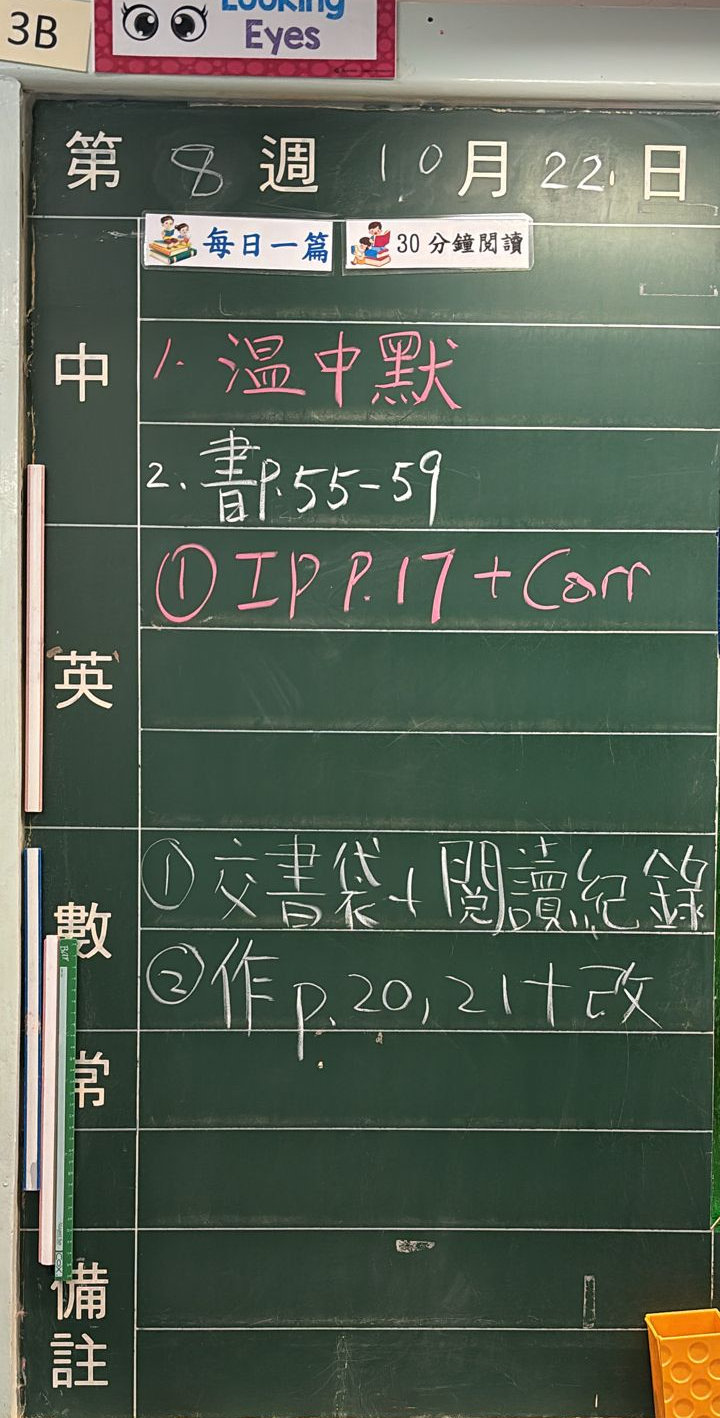 3B
Looking
Eyes
第 8 週 10月22日
每日一篇 30分鐘閱讀
中
1. 溫中默
2. 書P.55-59
英
① IP P.17 + Corr
數
① 交書袋+閱讀紀錄
② 作p.20,21+改
常
備註